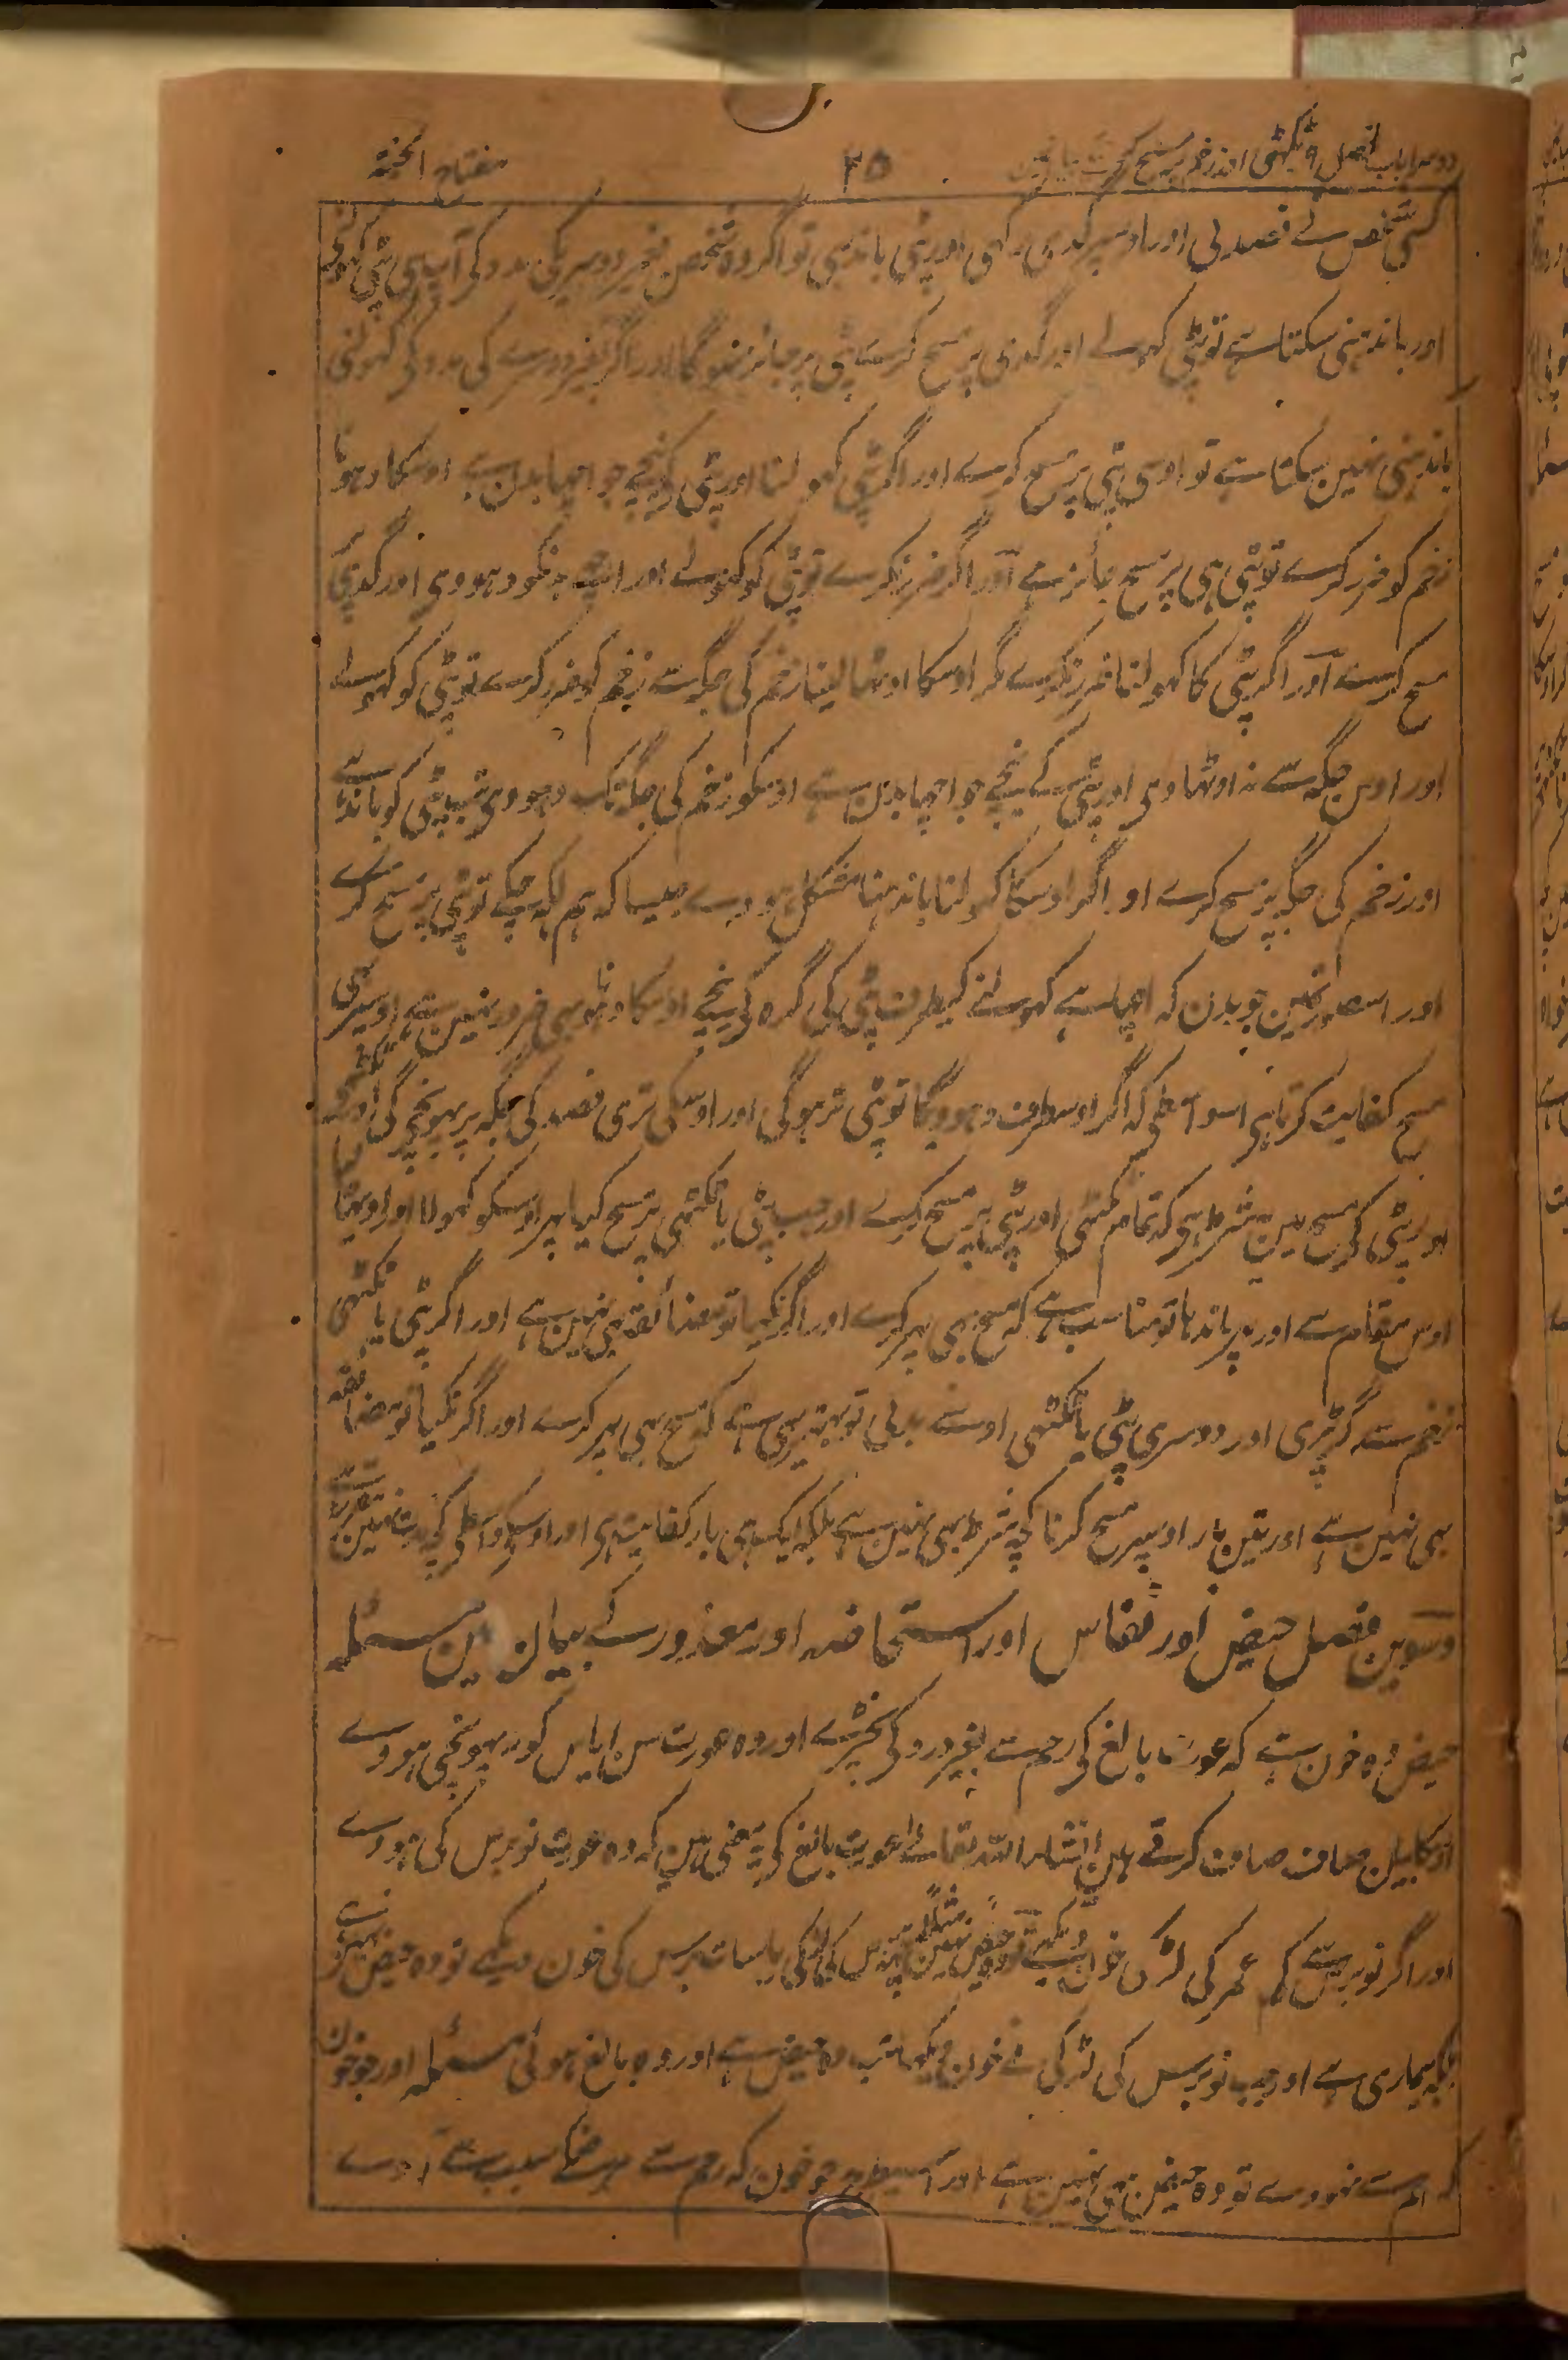 دوسرا باب فصل ۹ ٹکٹھی اور زخم پر مسح کرنیکے بیان مین ۲۵ مفتاح الجنۃ
کسی شخص نے فصد لی اور اوسپر گدی رکھی اور پٹی باندہی تو اگر وہ شخص بغیر دوسریکی مدد کی آپ ہی پٹی کھولنی
اور باندہنی سکتا ہے تو پٹی کہولے اور گدی پر مسح کرے پٹی پر جائز نہوگا اور اگر بغیر دوسرے کی مدد کی کھولنی
باندہنی نہین سکتا ہے تو اوسی پٹی پر مسح کرے اور اگر پٹی کھولنا اور پٹی کی نیچے جو اچہا بدن ہے اوسکا دہونا
زخم کو ضرر کرے تو پٹی ہی پر مسح جائز ہے اور اگر ضرر نکرے تو پٹی کو کہولے اور اچہے بدنکو دہووی اور گدی پر
مسح کرے اور اگر پٹی کا کہولنا ضرر نکرے مگر اوسکا اوٹہا لینا زخم کی جگہ سے زخم کو ضرر کرے تو پٹی کو کہولے
اور اوس جگہ سے نہ اوٹھاوی اور پٹی کے نیچے جو اچہا بدن ہے اوسکو زخم کی جگہ تک دہووی تب پٹی کو باندہے
اور زخم کی جگہ پر مسح کرے اور اگر اوسکا کہولنا باندہنا مشکل ہووے جیسا کہ ہم لکھ چکے تو پٹی پر مسح کرے
اور اس صورتمین جو بدن کہ اچہا ہے کہولنے کیطرف پٹی کی گرہ کی نیچے اوسکا دہونا بہی ضرور نہین ہے اوسپر بھی
مسح کفایت کرتا ہی اسواسطے کہ اگر اوسطرف دہوویگا تو پٹی تر ہوگی اور اوسکی تری فصد کی جگہ پر پہونچیگی
اور پٹی کی مسح مین شرط ہی کہ تمام ٹکٹھی اور پٹی پر مسح کرے اور جب پٹی یا ٹکٹھی پر مسح کیا پہر اوسکو کہولا اور اوٹھا لیا
اوس مقام سے اور پہر باندہا تو مناسب ہے کہ مسح بہی پہر کرے اور اگر نکیا تو مضائقہ بہی نہین ہے اور اگر پٹی یا ٹکٹھی
زخم سے گر پڑی اور دوسری پٹی یا ٹکٹھی اوسنے بدلی تو بہتر یہی ہے کہ مسح بہی پہر کرے اور اگر نکیا تو مضائقہ
بہی نہین ہے اور تین بار اوسپر مسح کرنا کچھ شرط بہی نہین ہے بلکہ ایک ہی بار کفایت ہی اور اوسکی واسطے کچھ مدت معین نہین
دسوین فصل حیض اور نفاس اور استحاضہ اور معذور کے بیان مین مسئلہ
حیض وہ خون ہے کہ عورت بالغ کی رحم سے بغیر درد کی نکلے اور وہ عورت سن ایاس کو نہ پہونچی ہووے
اوسکا بیان صاف صاف کرتے ہین انشاء اللہ تعالے عورت بالغ کی یہ معنی ہین کہ وہ عورت نو برس کی ہووے
اور اگر نو برس سے کم عمر کی لڑکی خون دیکھے تو وہ حیض نہین مثلاً چہہ برس کی لڑکی یا سات برس کی خون دیکہے تو وہ حیض نہین ہے
بلکہ بیماری ہے اور جب نو برس کی لڑکی نے خون دیکھا تب وہ حیض ہے اور وہ بالغ ہوئی مسئلہ اور جو خون
کہ رحم سے نہووے تو وہ حیض بہی نہین ہے اور اسیطرح جو خون کہ رحم سے مرض کے سبب سے آوے